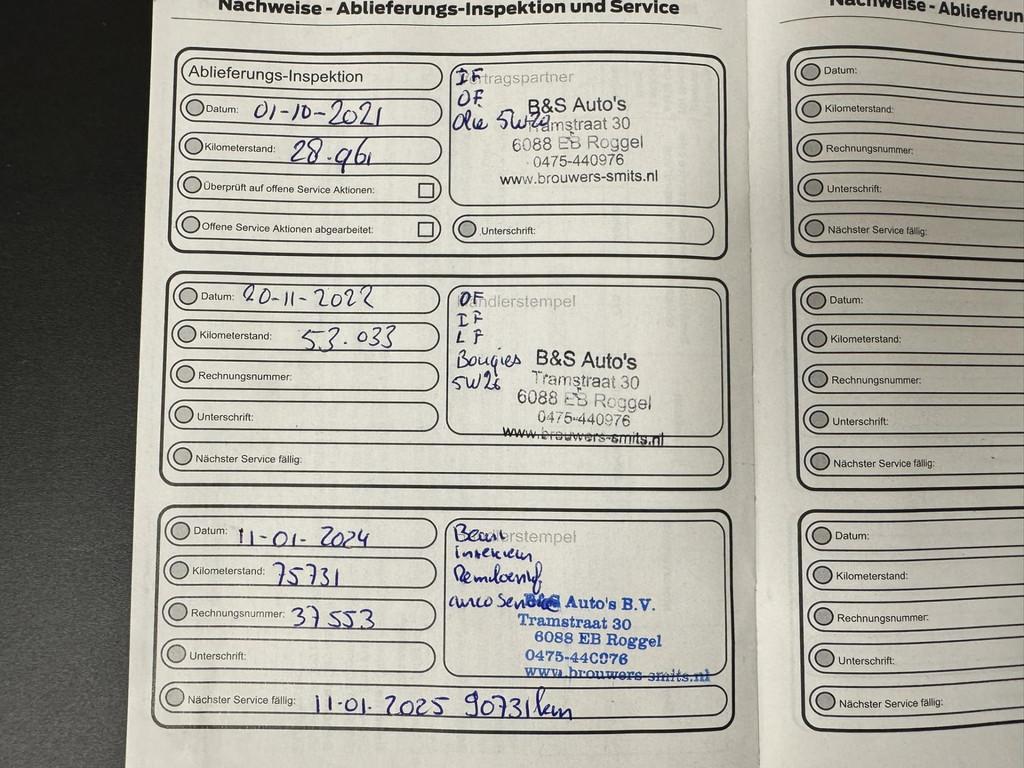 Nachweise - Ablieferungs-Inspektion und Service
Ablieferungs-Inspektion
Datum: 01-10-2021
Kilometerstand: 28.961
Überprüft auf offene Service Aktionen:
Offene Service Aktionen abgearbeitet:
IF
OF
Olie 5W20
B&S Auto's
Tramstraat 30
6088 EB Roggel
0475-440976
www.brouwers-smits.nl
Unterschrift:
Datum: 20-11-2022
Kilometerstand: 53.033
Rechnungsnummer:
Unterschrift:
Nächster Service fällig:
OF
IF
LF
Bougies
B&S Auto's
Tramstraat 30
6088 EB Roggel
0475-440976
www.brouwers-smits.nl
Datum: 11-01-2024
Kilometerstand: 75731
Rechnungsnummer: 37553
Unterschrift:
Nächster Service fällig: 11-01-2025 90731km
Remvloeistof
airco Service
B&S Auto's B.V.
Tramstraat 30
6088 EB Roggel
0475-440976
www.brouwers-smits.nl
Nachweise - Ablieferun
Datum:
Kilometerstand:
Rechnungsnummer:
Unterschrift:
Nächster Service fällig:
Datum:
Kilometerstand:
Rechnungsnummer:
Unterschrift:
Nächster Service fällig:
Datum:
Kilometerstand:
Rechnungsnummer:
Unterschrift:
Nächster Service fällig: